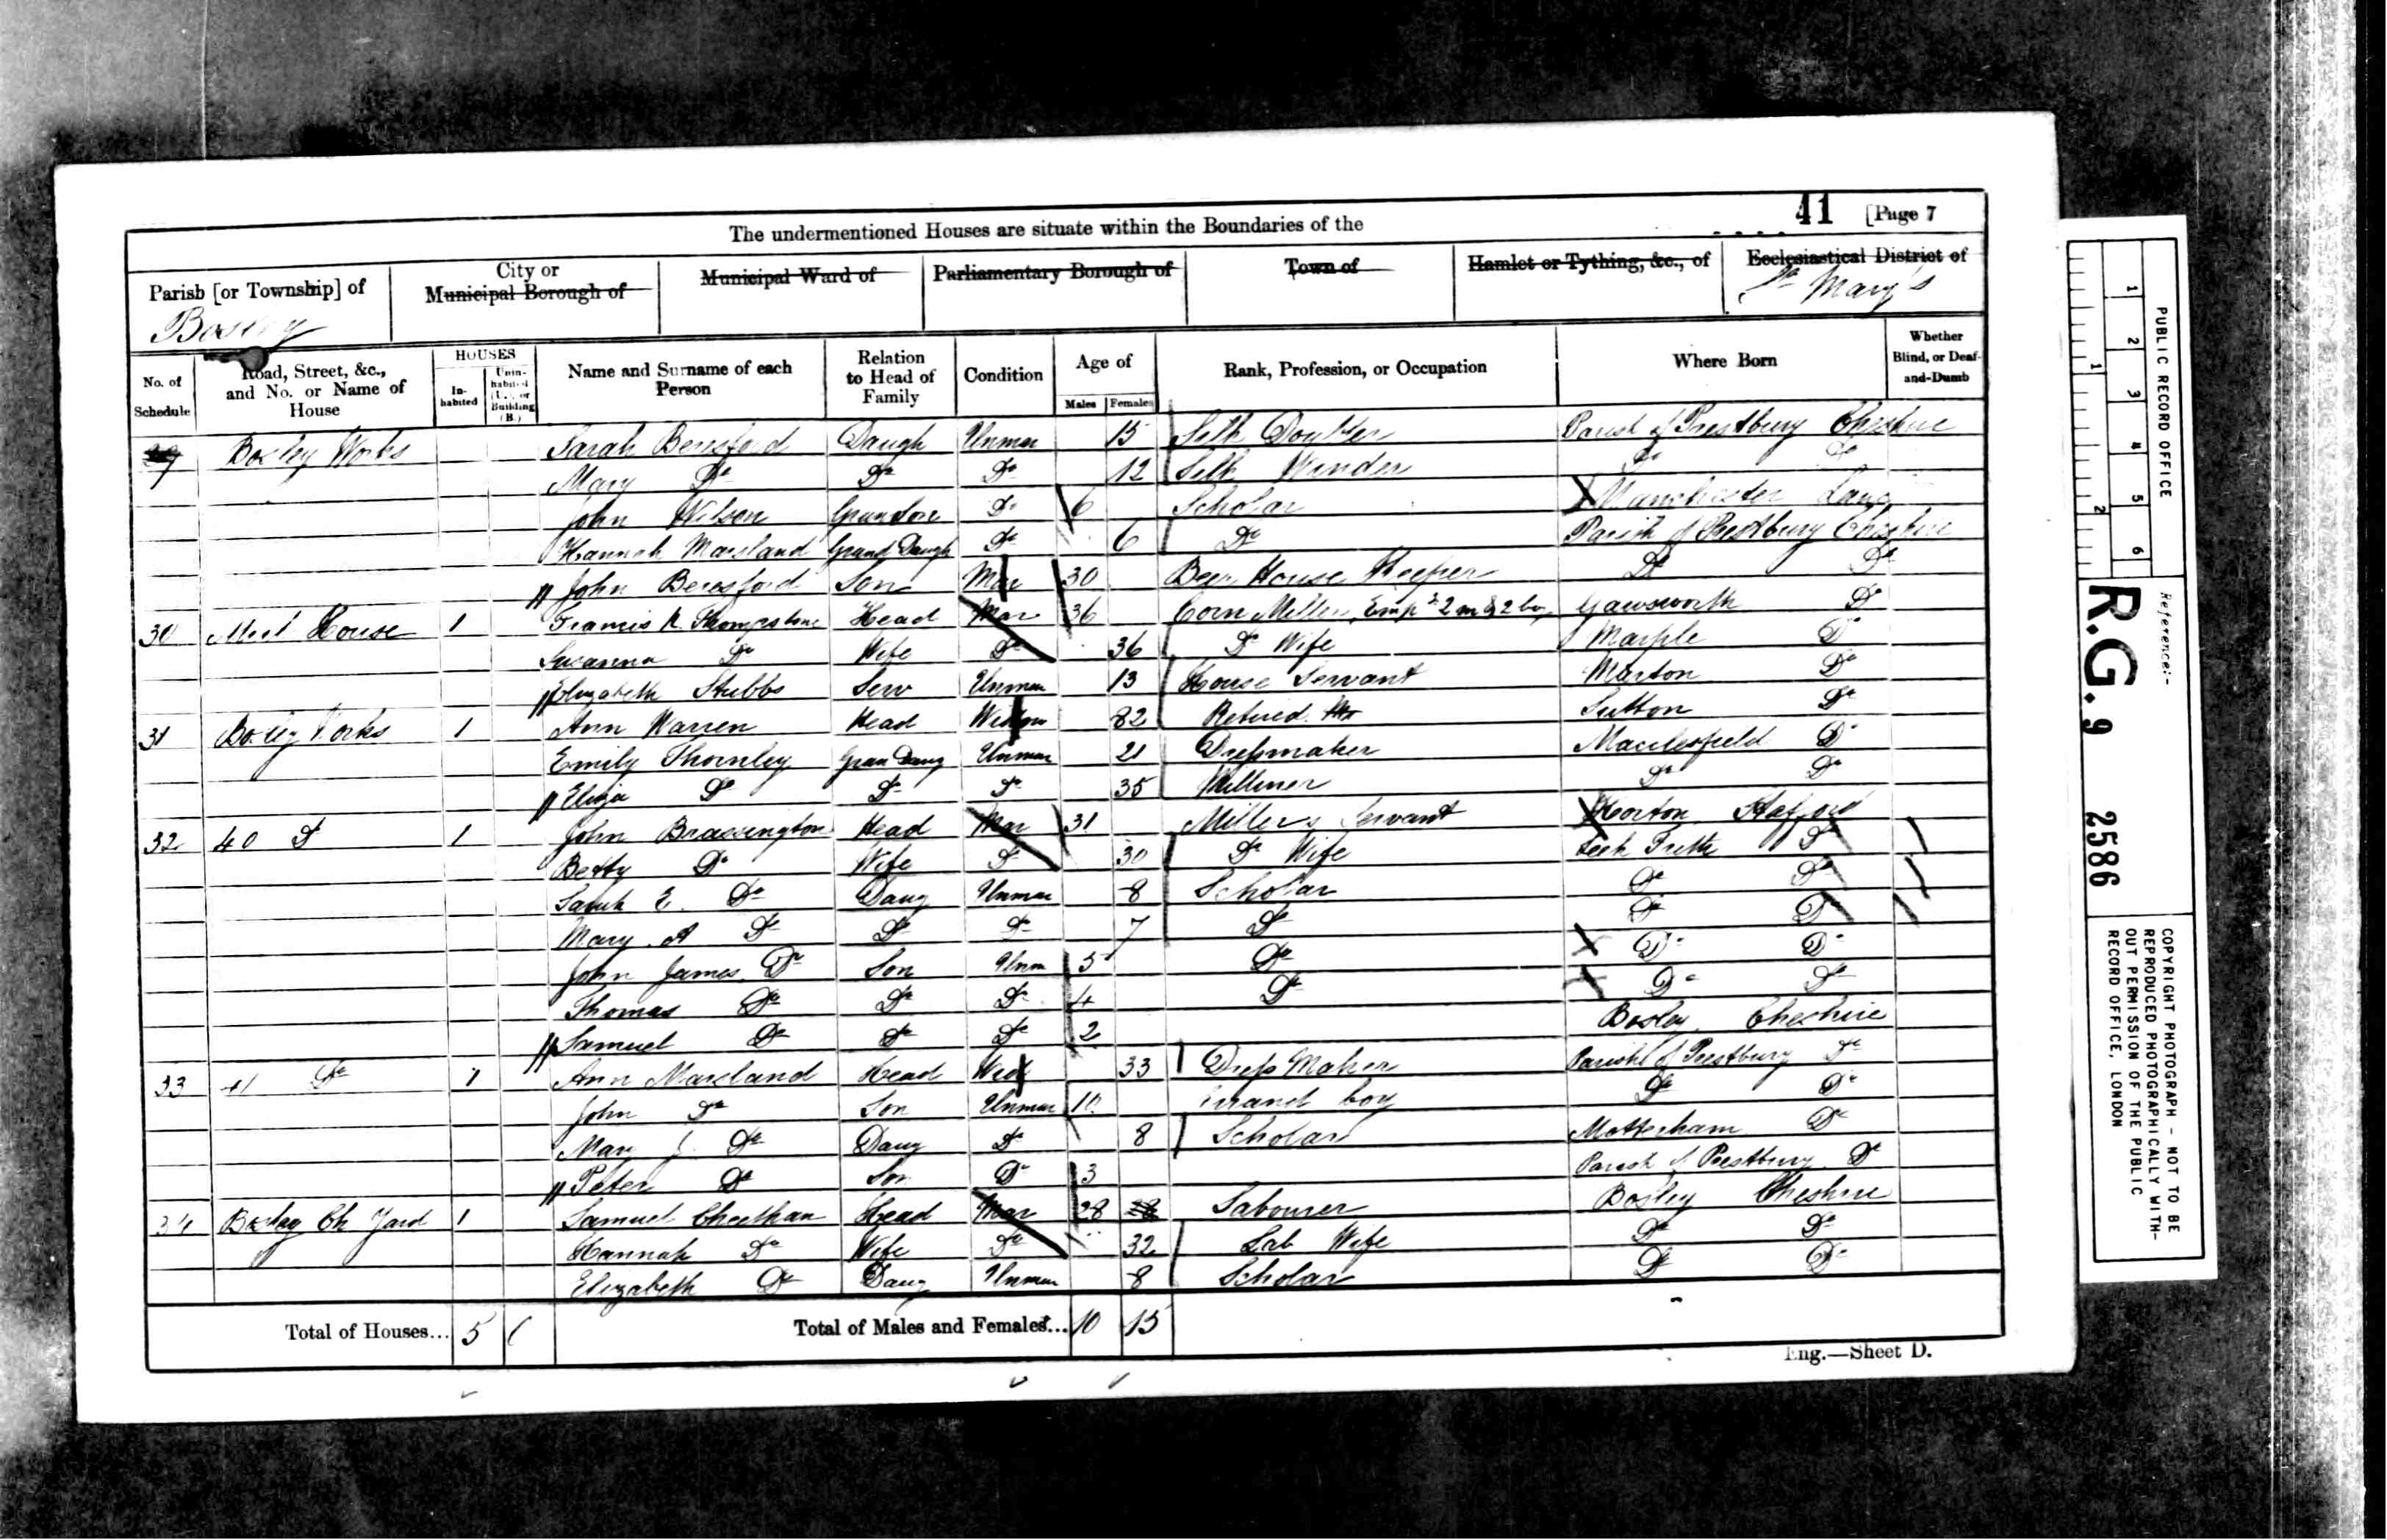 41 [Page 7
The undermentioned Houses are situate within the Boundaries of the
Parish [or Township] of
City or Municipal Borough of
Municipal Ward of
Parliamentary Borough of
Town of
Hamlet or Tything, &c., of
Ecclesiastical District of
Bosley
St Mary's
No. of Schedule
Road, Street, &c., and No. or Name of House
HOUSES
In-habited
Unin-habited (U.), or Building (B.)
Name and Surname of each Person
Relation to Head of Family
Condition
Age of
Males
Females
Rank, Profession, or Occupation
Where Born
Whether Blind, or Deaf-and-Dumb
29 Bosley Works Sarah Beresford Daugh Unmar 15 Silk Doubler Parish of Prestbury Cheshire
Mary Do Do Do 12 Silk Winder Do Do
John Wilson Grandson Do 6 Scholar Manchester Lanc
Hannah Marsland Grand Daugh Do 6 Do Parish of Prestbury Cheshire
John Beresford Son Mar 30 Beer House Keeper Do Do
30 Mill House 1 Francis R Thompstone Head Mar 36 Corn Miller Emp 2 m & 2 boy Gawsworth Do
Susanna Do Wife Do 36 Do Wife Marple Do
Elizabeth Stubbs Serv Unmar 13 House Servant Marton Do
31 Bosley Works 1 Ann Warren Head Widow 82 Retired Sutton Do
Emily Thornley Gran Daug Unmar 21 Dressmaker Macclesfield Do
Eliza Do Do Do 35 Milliner Do Do
32 40 Do 1 John Brassington Head Mar 31 Millers Servant Horton Stafford
Betty Do Wife Do 30 Do Wife Leek Frith Do
Sarah E. Do Daug Unmar 8 Scholar Do Do
Mary A Do Do Do 7 Do Do Do
John James Do Son Unm 5 Do Do Do
Thomas Do Do Do 4 Do Do Do
Samuel Do Do Do 2 Bosley Cheshire
33 41 Do 1 Ann Marsland Head Wid 33 Dress Maker Parish of Prestbury Do
John Do Son Unmar 10 Errand boy Do Do
Mary J. Do Daug Do 8 Scholar Motterham Do
Peter Do Son Do 3 Parish of Prestbury Do
34 Bosley Ch Yard 1 Samuel Cheetham Head Mar 28 28 Labourer Bosley Cheshire
Hannah Do Wife Do 32 Lab Wife Do Do
Elizabeth Do Daug Unmar 8 Scholar Do Do
Total of Houses... 5
Total of Males and Females... 10 15
Eng.—Sheet D.
1 2 3 4 5 6
1 2
PUBLIC RECORD OFFICE
Reference:-
R.G. 9 2586
COPYRIGHT PHOTOGRAPH - NOT TO BE
REPRODUCED PHOTOGRAPHICALLY WITH-
OUT PERMISSION OF THE PUBLIC
RECORD OFFICE, LONDON